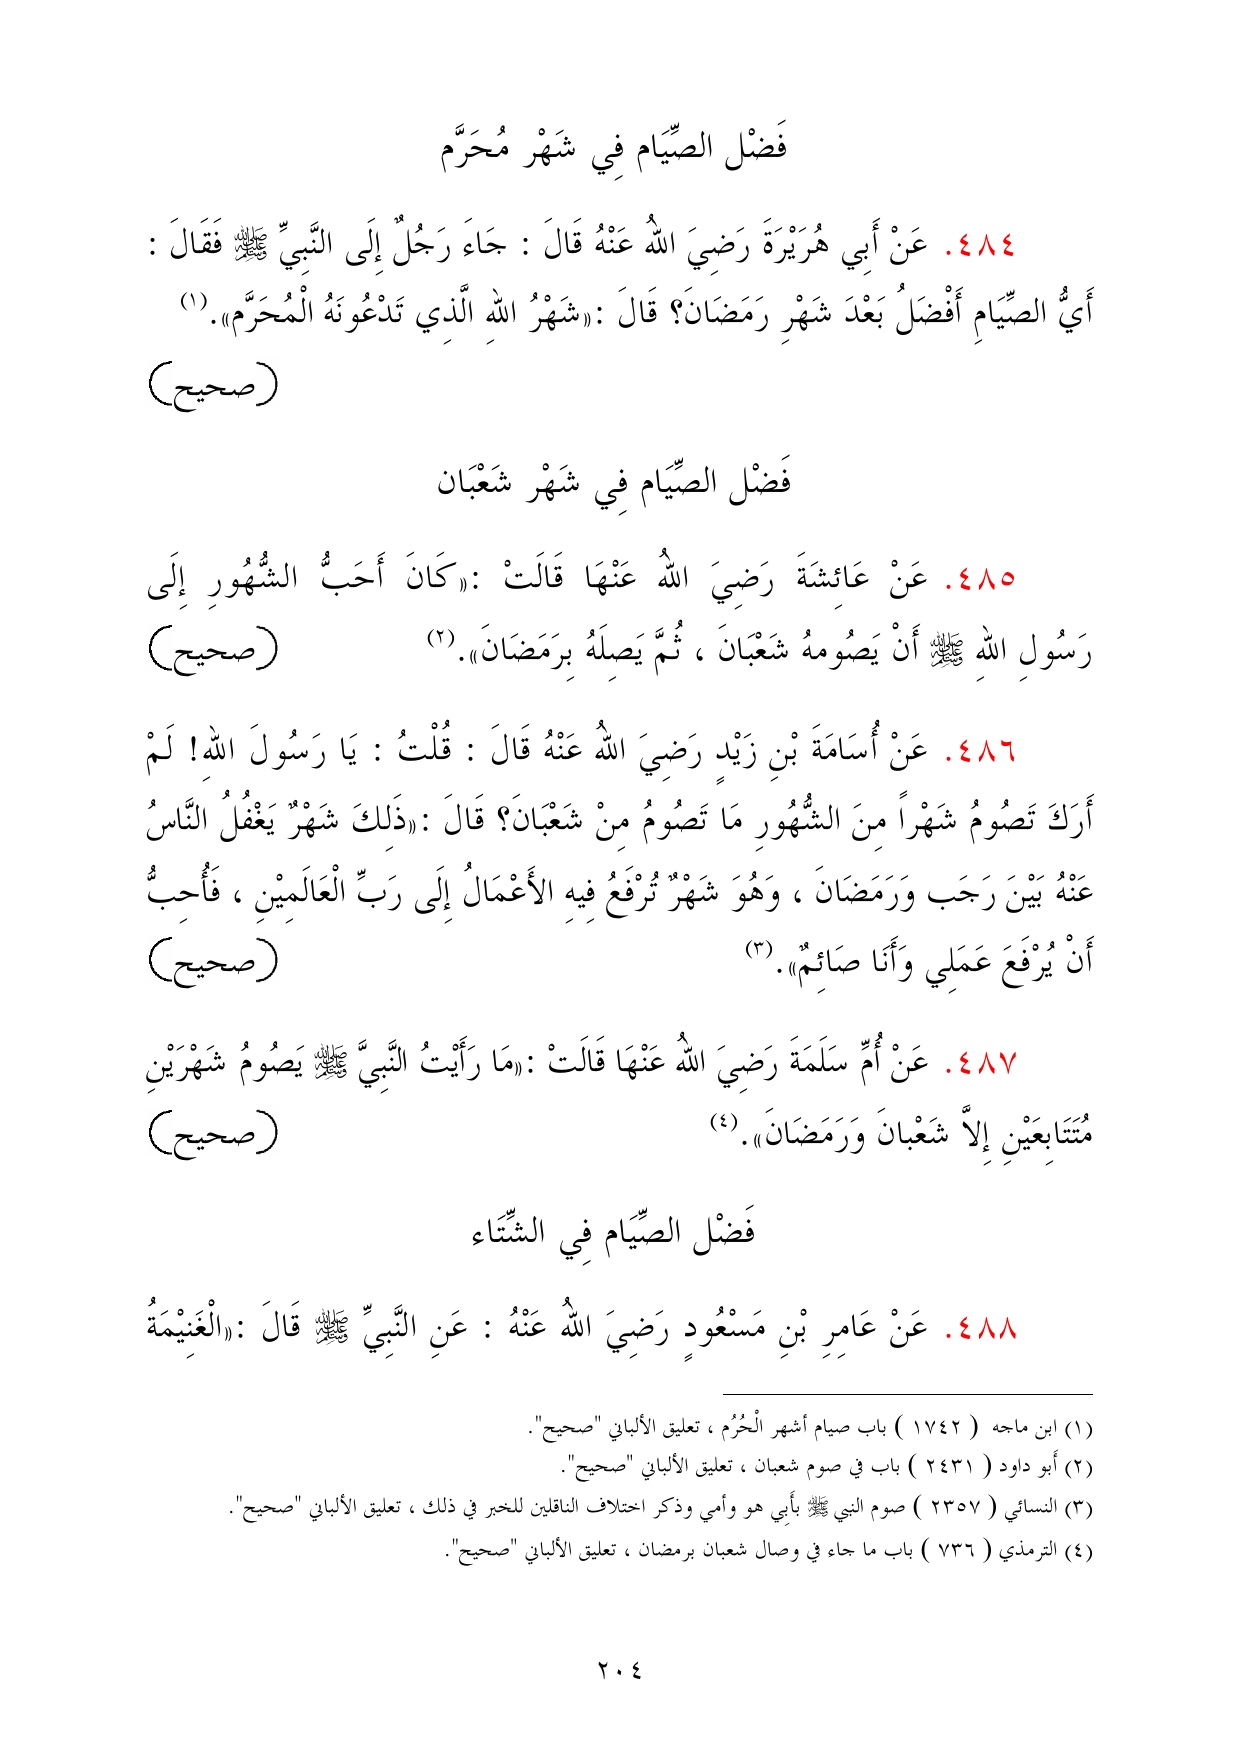 فَضْل الصِّيَام فِي شَهْر مُحَرَّم
٤٨٤. عَنْ أَبِي هُرَيْرَةَ رَضِيَ اللهُ عَنْهُ قَالَ : جَاءَ رَجُلٌ إِلَى النَّبِيِّ ﷺ فَقَالَ :
أَيُّ الصِّيَامِ أَفْضَلُ بَعْدَ شَهْرِ رَمَضَانَ؟ قَالَ :«شَهْرُ اللهِ الَّذِي تَدْعُونَهُ الْمُحَرَّم».(١)
(صحيح)
فَضْل الصِّيَام فِي شَهْر شَعْبَان
٤٨٥. عَنْ عَائِشَةَ رَضِيَ اللهُ عَنْهَا قَالَتْ :«كَانَ أَحَبُّ الشُّهُورِ إِلَى
رَسُولِ اللهِ ﷺ أَنْ يَصُومهُ شَعْبَانَ ، ثُمَّ يَصِلَهُ بِرَمَضَانَ».(٢) (صحيح)
٤٨٦. عَنْ أُسَامَةَ بْنِ زَيْدٍ رَضِيَ اللهُ عَنْهُ قَالَ : قُلْتُ : يَا رَسُولَ اللهِ! لَمْ
أَرَكَ تَصُومُ شَهْراً مِنَ الشُّهُورِ مَا تَصُومُ مِنْ شَعْبَانَ؟ قَالَ :«ذَلِكَ شَهْرٌ يَغْفُلُ النَّاسُ
عَنْهُ بَيْنَ رَجَب وَرَمَضَانَ ، وَهُوَ شَهْرٌ تُرْفَعُ فِيهِ الأَعْمَالُ إِلَى رَبِّ الْعَالَمِيْنِ ، فَأُحِبُّ
أَنْ يُرْفَعَ عَمَلِي وَأَنَا صَائِمٌ».(٣) (صحيح)
٤٨٧. عَنْ أُمِّ سَلَمَةَ رَضِيَ اللهُ عَنْهَا قَالَتْ :«مَا رَأَيْتُ النَّبِيَّ ﷺ يَصُومُ شَهْرَيْنِ
مُتَتَابِعَيْنِ إِلاَّ شَعْبانَ وَرَمَضَانَ».(٤) (صحيح)
فَضْل الصِّيَام فِي الشِّتَاء
٤٨٨. عَنْ عَامِرِ بْنِ مَسْعُودٍ رَضِيَ اللهُ عَنْهُ : عَنِ النَّبِيِّ ﷺ قَالَ :«الْغَنِيْمَةُ
(١) ابن ماجه ( ١٧٤٢ ) باب صيام أشهر الْحُرُم ، تعليق الألباني "صحيح".
(٢) أَبو داود ( ٢٤٣١ ) باب في صوم شعبان ، تعليق الألباني "صحيح".
(٣) النسائي ( ٢٣٥٧ ) صوم النبي ﷺ بأَبِي هو وأمي وذكر اختلاف الناقلين للخبر في ذلك ، تعليق الألباني "صحيح".
(٤) الترمذي ( ٧٣٦ ) باب ما جاء في وصال شعبان برمضان ، تعليق الألباني "صحيح".
٢٠٤